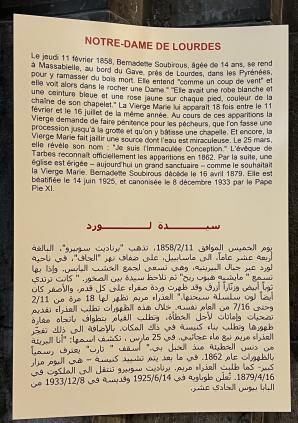 NOTRE-DAME DE LOURDES
Le jeudi 11 février 1858, Bernadette Soubirous, âgée de 14 ans, se rend
à Massabielle, au bord du Gave, près de Lourdes, dans les Pyrénées,
pour y ramasser du bois mort. Elle entend "comme un coup de vent" et
elle voit alors dans le rocher une Dame." "Elle avait une robe blanche et
une ceinture bleue et une rose jaune sur chaque pied, couleur de la
chaîne de son chapelet." La Vierge Marie lui apparaît 18 fois entre le 11
février et le 16 juillet de la même année. Au cours de ces apparitions la
Vierge demande de faire pénitence pour les pécheurs, que l'on fasse une
procession jusqu'à la grotte et qu'on y bâtisse une chapelle. Et encore, la
Vierge Marie fait jaillir une source dont l'eau est miraculeuse. Le 25 mars,
elle révèle son nom : "Je suis l'Immaculée Conception." L'évêque de
Tarbes reconnaît officiellement les apparitions en 1862. Par la suite, une
église est érigée – aujourd'hui un grand sanctuaire – comme le souhaitait
la Vierge Marie. Bernadette Soubirous décède le 16 avril 1879. Elle est
béatifiée le 14 juin 1925, et canonisée le 8 décembre 1933 par le Pape
Pie XI.
سيدة لورد
يوم الخميس الموافق 1858/2/11، تذهب "برناديت سوبيرو"، البالغة
أربعة عشر عاماً، الى ماسابيل، على ضفاف نهر "الجاف"، في ناحية
لورد عبر جبال البيرينيه، وهي تسعى لجمع الخشب اليابس. وإذا بها
تسمع " مايشبه هبوب ريح" ثم تلاحظ سيدة بين الصخور. " كانت ترتدي
ثوباً أبيض وزنّاراً أزرق وقد ظهرت وردة صفراء على كل قدم، والأصفر كان
أيضاً لون سلسلة سبحتها." العذراء مريم تظهر لها 18 مرة من 2/11
وحتى 7/16 من العام نفسه. خلال هذه الظهورات تطلب العذراء تقديم
تضحيات وإماتات لأجل الخطأة، وتطلب القيام بتطواف باتجاه مغارة
ظهورها وتطلب بناء كنيسة في ذاك المكان. بالإضافة الى ذلك تفجّر
العذراء مريم نبع ماء عجائبي. في 25 مارس ، تكشف اسمها: "أنا البريئة
من دنس الخطيئة منذ الحبل بي." أسقف " تارب" يعترف رسمياً
بالظهورات عام 1862. في ما بعد يتم تشييد كنيسة – هي اليوم مزار
كبير- كما طلبت العذراء مريم. برناديت سوبيرو تنتقل الى الملكوت في
1879/4/16. تُعلَن طوباوية في 1925/6/14 وقديسة في 1933/12/8 من
البابا بيوس الحادي عشر.